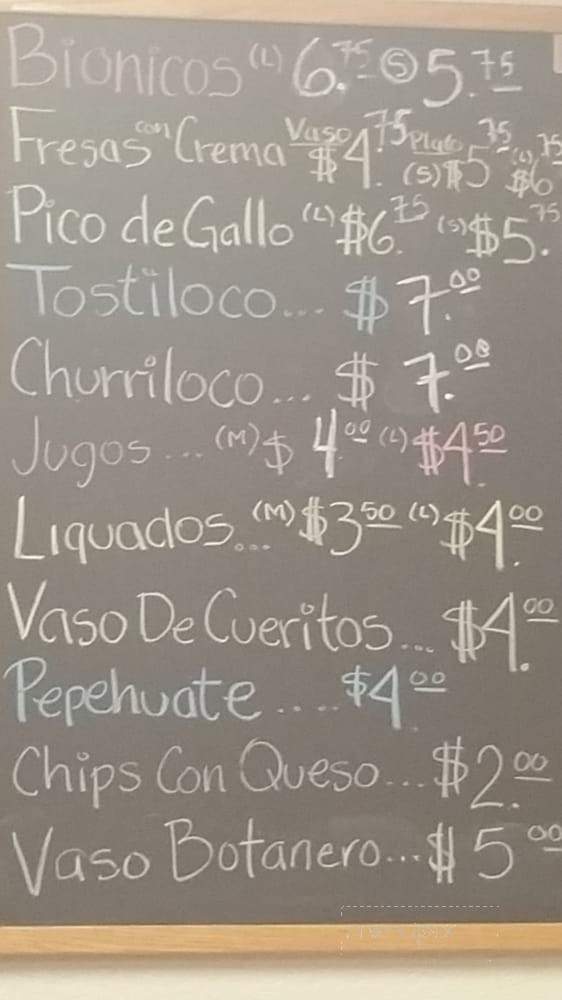 Bionicos (L) 6.75 (S) 5.75
Fresas con Crema Vaso $4.75 Plato (S) $5.75 (L) $6.75
Pico de Gallo (L) $6.75 (S) $5.75
Tostiloco... $7.00
Churriloco... $7.00
Jugos... (M) $4.00 (L) $4.50
Liquados... (M) $3.50 (L) $4.00
Vaso De Cueritos... $4.00
Pepehuate.... $4.00
Chips Con Queso... $2.00
Vaso Botanero... $5.00